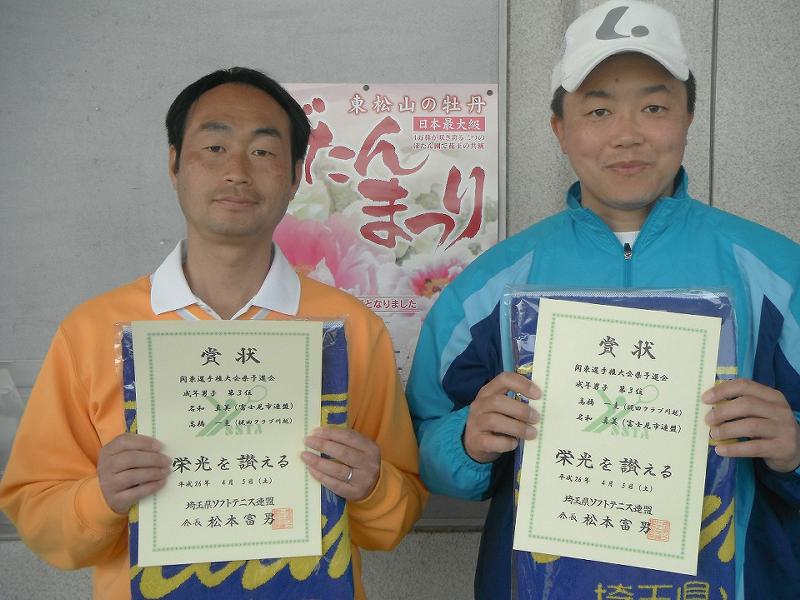 東松山の牡丹
日本最大級
ぼたん
まつり
となりました
賞状
関東選手権大会県予選会
成年男子 第3位
名和 真美(富士見市連盟)
(梶田クラブ川越)
SSTA
栄光を讃える
平成26年 4月5日(土)
埼玉県ソフトテニス連盟
会長 松本富男
賞状
関東選手権大会県予選会
成年男子 第3位
(梶田クラブ川越)
名和 真美(富士見市連盟)
SSTA
栄光を讃える
平成26年 4月5日(土)
埼玉県ソフトテニス連盟
会長 松本富男
埼玉県